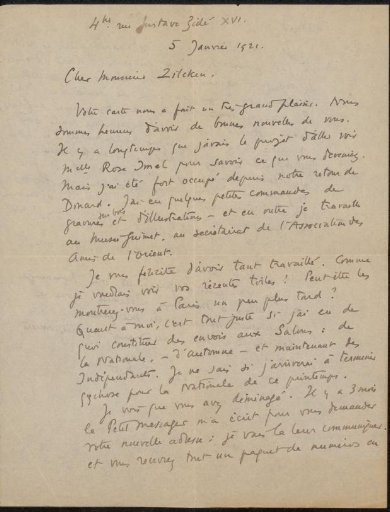 4bis rue Gustave Zédé XVI.
5 Janvier 1921.
Cher Monsieur Zilcken.
Votre carte nous a fait un très grand plaisir. Nous
sommes heureux d'avoir de bonnes nouvelles de vous.
Il y a longtemps que j'avais le projet d'aller voir
Melle Rose Imel pour savoir ce que vous deveniez.
Mais j'ai été fort occupé depuis notre retour de
Dinard. J'ai eu quelques petites commandes de
gravures sur bois et d'illustrations - et en outre je travaille
au Musée Guimet, au secrétariat de l'Association des
Amis de l'Orient.
Je vous félicite d'avoir tant travaillé. Comme
je voudrais voir vos récentes toiles ! Peut-être les
montrerez-vous à Paris un peu plus tard ?
Quant à moi, c'est tout juste si j'ai eu de
quoi constituer des envois aux Salons : de
la Nationale, - d'Automne - et maintenant des
Indépendants. Je ne sais si j'arriverai à terminer
quelque chose pour la Nationale de ce printemps.
Je vois que vous avez déménagé. Il y a 3 mois
le Petit Messager m'a écrit pour vous demander
votre nouvelle adresse : je vais la leur communiquer
et vous recevrez tout un paquet de numéros en